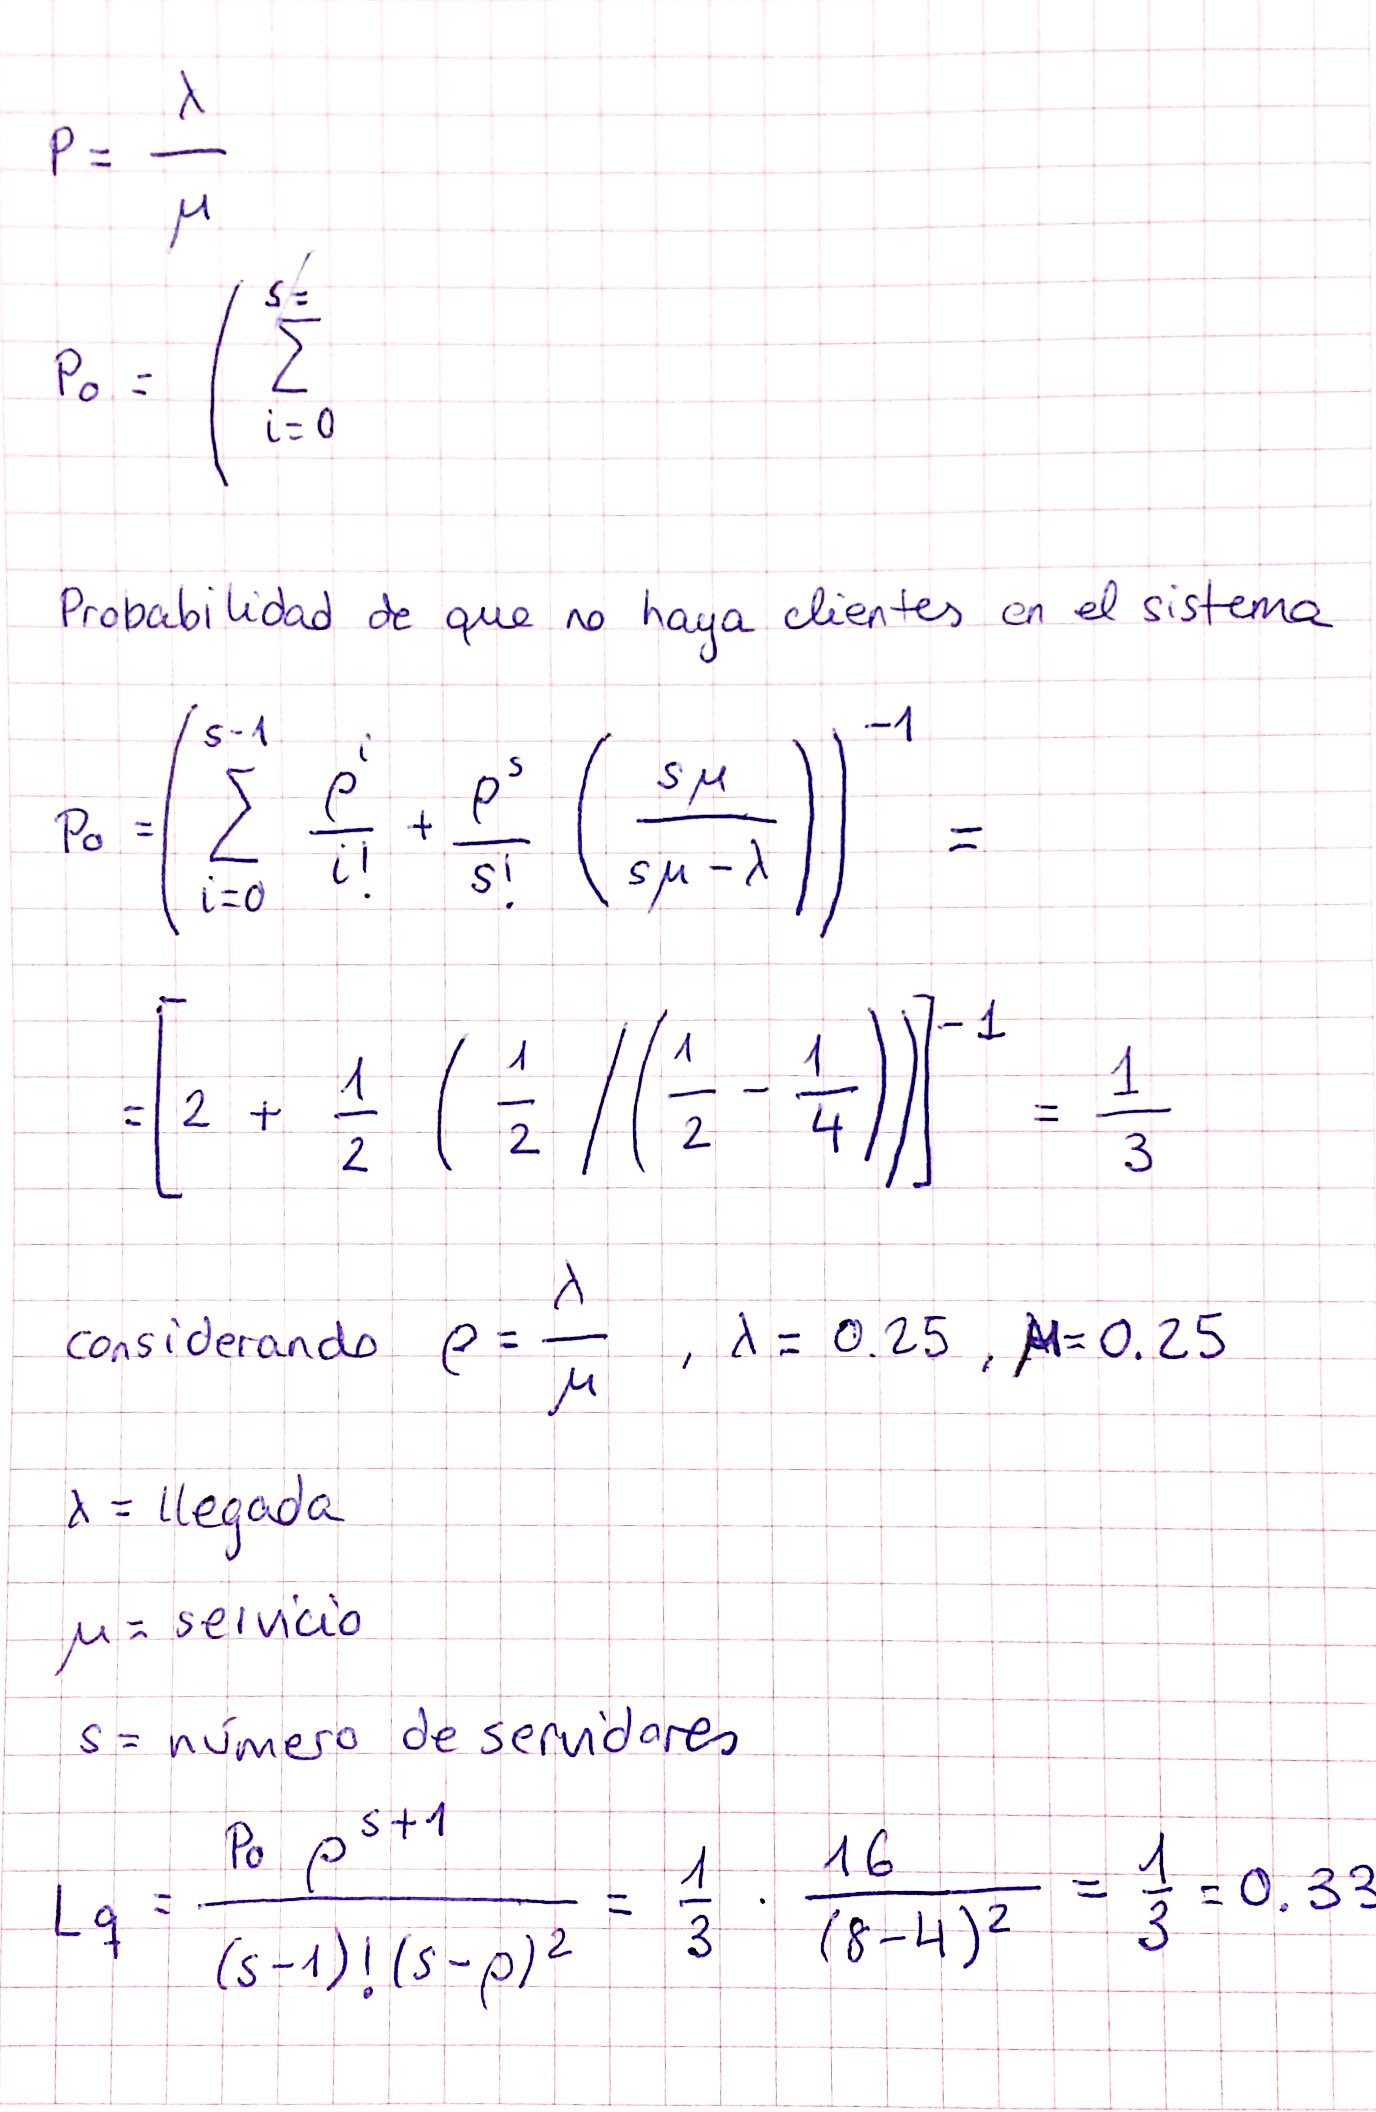 P = λ / μ
P₀ = ( ∑_{i=0}^{s=}
Probabilidad de que no haya clientes en el sistema
P₀ = ( ∑_{i=0}^{s-1} ρ^i / i! + ρ^s / s! ( sμ / (sμ - λ) ) )^{-1} =
= [ 2 + 1/2 ( 1/2 / ( 1/2 - 1/4 ) ) ]^{-1} = 1/3
considerando ρ = λ / μ , λ = 0.25 , μ = 0.25
λ = llegada
μ = servicio
s = número de servidores
Lq = P₀ ρ^{s+1} / (s-1)! (s-ρ)² = 1/3 · 16 / (8-4)² = 1/3 = 0.33